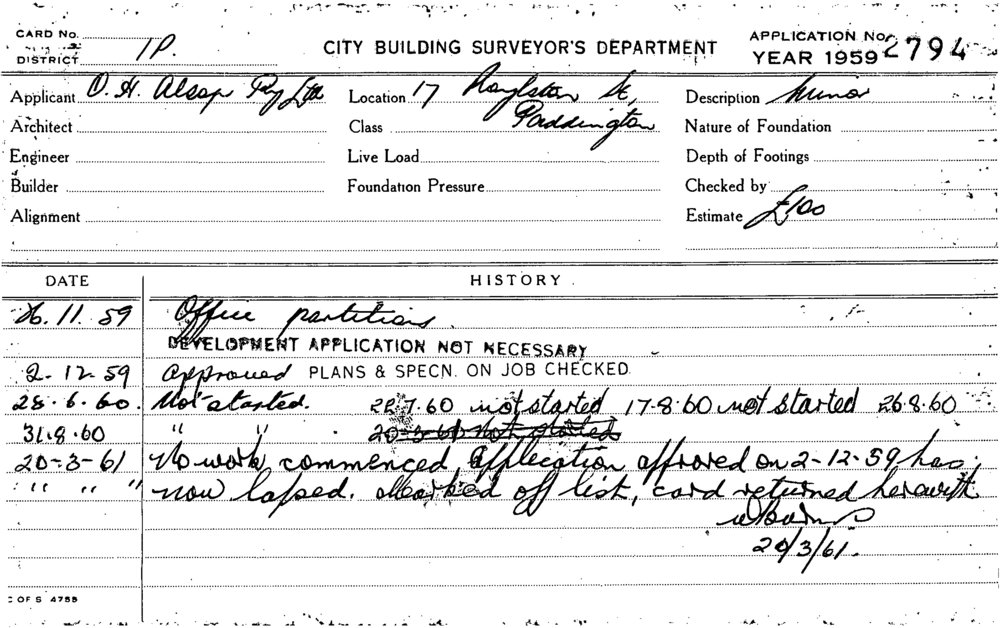 CARD No.
DISTRICT 1P.
CITY BUILDING SURVEYOR'S DEPARTMENT
APPLICATION No. 2794
YEAR 1959
Applicant O. H. Alsop Pty Ltd Location 17 St, Description Minor
Architect Class Paddington Nature of Foundation
Engineer Live Load Depth of Footings
Builder Foundation Pressure Checked by
Alignment Estimate £100
DATE HISTORY
26.11.59 Office partitions.
DEVELOPMENT APPLICATION NOT NECESSARY
2-12-59 approved PLANS & SPECN. ON JOB CHECKED
28.6.60. Not started. 22.7.60 not started 17.8.60 not started 26.8.60
31.8.60 " " . 20-3-61 Not started
20-3-61 No work commenced, Application approved on 2-12-59 has
" " " now lapsed. Marked off list, card returned herewith
20/3/61.
C OF S 4755